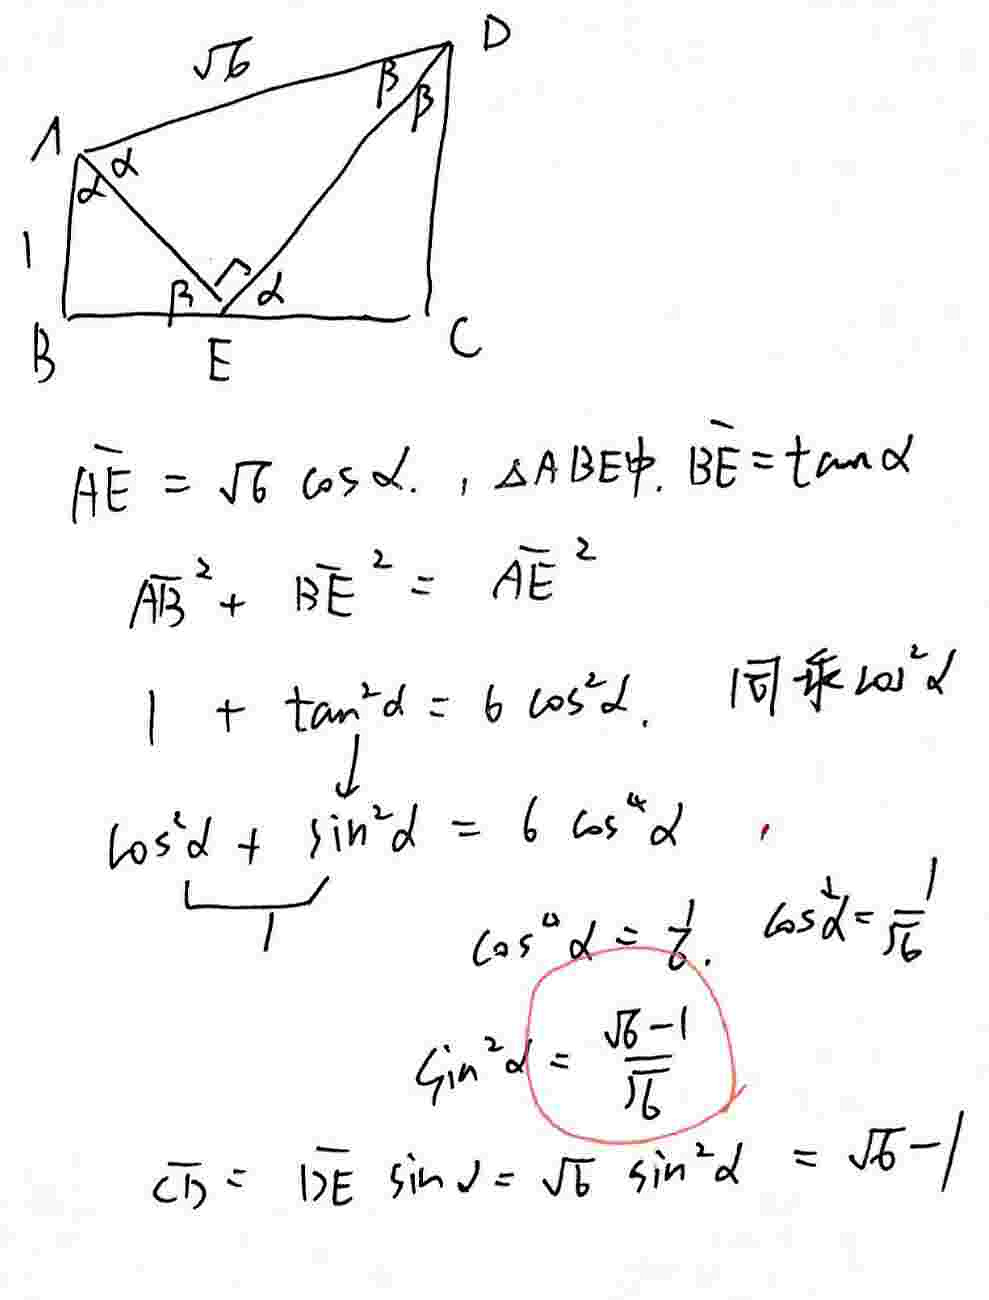 D
√6
β
β
A
α
α
1
β
α
B
E
C
A̅E̅ = √6 cosα. , △ABE中. B̅E̅ = tanα
A̅B̅² + B̅E̅² = A̅E̅²
1 + tan²α = 6 cos²α. 同乘cos²α
↓
cos²α + sin²α = 6 cos⁴α
1
cos⁴α = 1/6. cos²α = 1/√6
sin²α = (√6-1)/√6
C̅D̅ = D̅E̅ sinα = √6 sin²α = √6-1